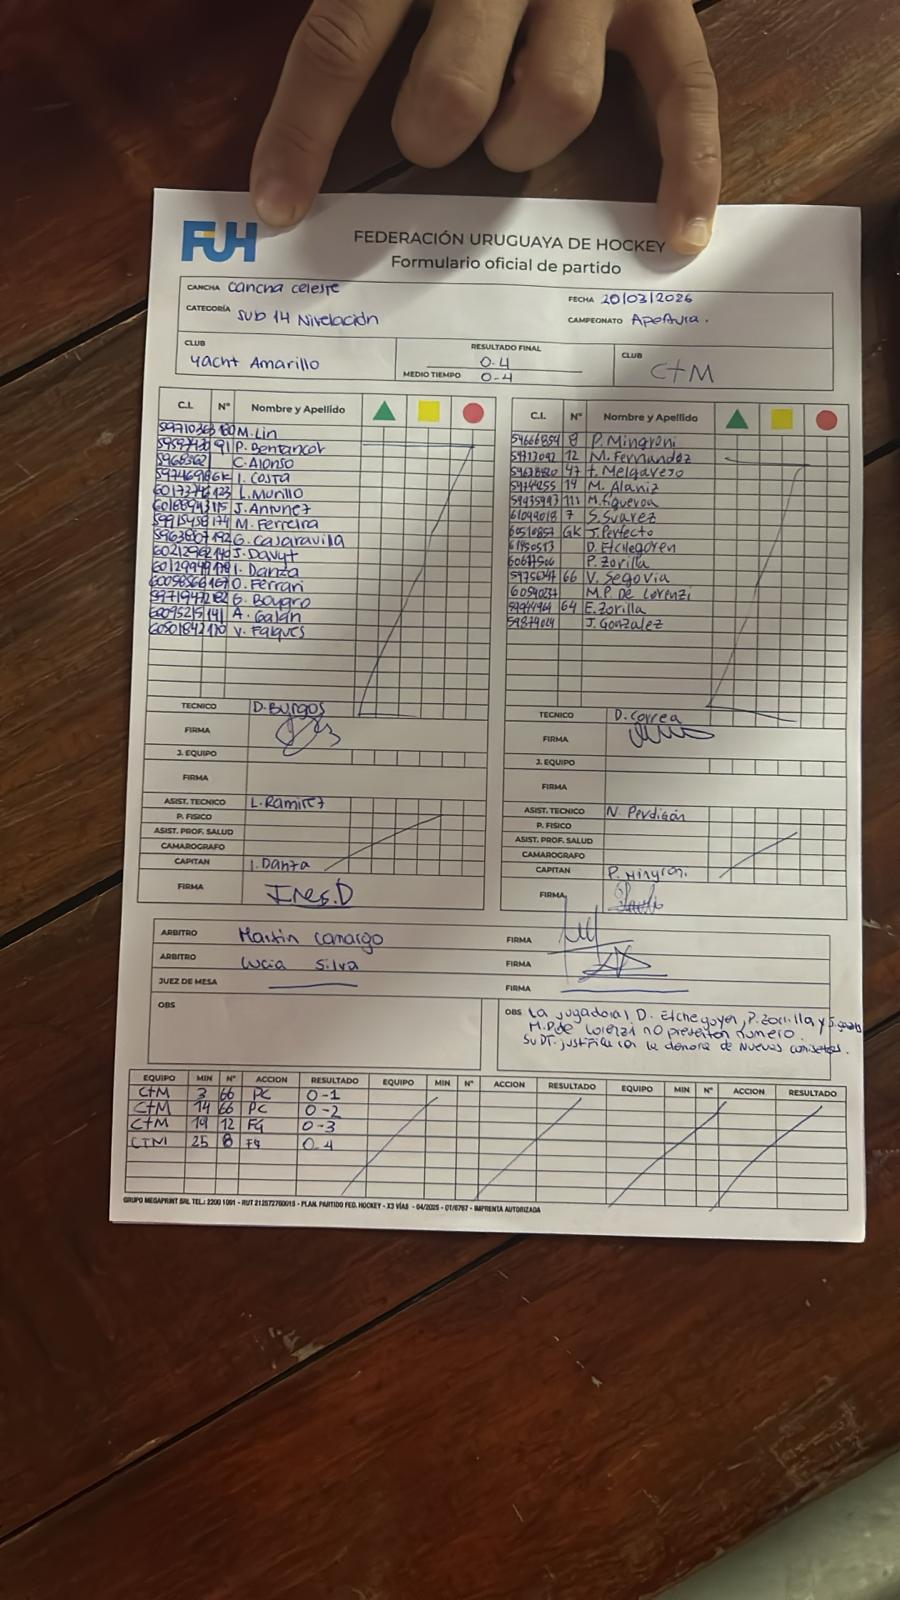 FUH
FEDERACIÓN URUGUAYA DE HOCKEY
Formulario oficial de partido
CANCHA Cancha celeste
FECHA 20/03/2026
CATEGORÍA Sub 14 Nivelación
CAMPEONATO Apertura.
CLUB Yacht Amarillo
RESULTADO FINAL 0-4
MEDIO TIEMPO 0-4
CLUB CTM
C.I. N° Nombre y Apellido
M. Lin
91 P. Bentancor
C. Alonso
GK I. Costa
123 L. Murillo
115 J. Antunez
174 M. Ferreira
192 G. Casaravila
J. Davyt
I. Danza
167 O. Ferrari
182 G. Bougro
141 A. Galan
170 V. Falques
TECNICO D. Burgos
FIRMA
J. EQUIPO
FIRMA
ASIST. TECNICO L. Ramirez
P. FISICO
ASIST. PROF. SALUD
CAMAROGRAFO
CAPITAN I. Danza
FIRMA Ines.D
C.I. N° Nombre y Apellido
54666854 8 P. Mingroni
12 M. Fernandez
47 F. Melgarejo
14 M. Alaniz
111 M. Figueroa
61099018 7 S. Suarez
60510857 GK J. Perfecto
61450513 D. Etchegoyen
P. Zorilla
66 V. Segovia
60590237 M.P. De Lorenzi
59944964 64 E. Zorilla
59879024 J. Gonzalez
TECNICO D. Correa
FIRMA
J. EQUIPO
FIRMA
ASIST. TECNICO N. Perdigón
P. FISICO
ASIST. PROF. SALUD
CAMAROGRAFO
CAPITAN P. Mingroni
FIRMA
ARBITRO Martin Camargo FIRMA
ARBITRO Lucia Silva FIRMA
JUEZ DE MESA FIRMA
OBS
OBS La jugadora, D. Etchegoyen, P. Zorrilla y
M.P. de Lorenzi no presentan numero.
Su DT. justifica con la demora de nuevas camisetas.
EQUIPO MIN N° ACCION RESULTADO EQUIPO MIN N° ACCION RESULTADO EQUIPO MIN N° ACCION RESULTADO
CTM 3 66 PC 0-1
CTM 14 66 PC 0-2
CTM 19 12 FG 0-3
CTM 25 8 FG 0-4
GRUPO MEGAPRINT SRL TEL.: 2200 1091 - RUT 212572760015 - PLAN. PARTIDO FED. HOCKEY - X3 VÍAS - 04/2025 - 07/6767 - IMPRENTA AUTORIZADA